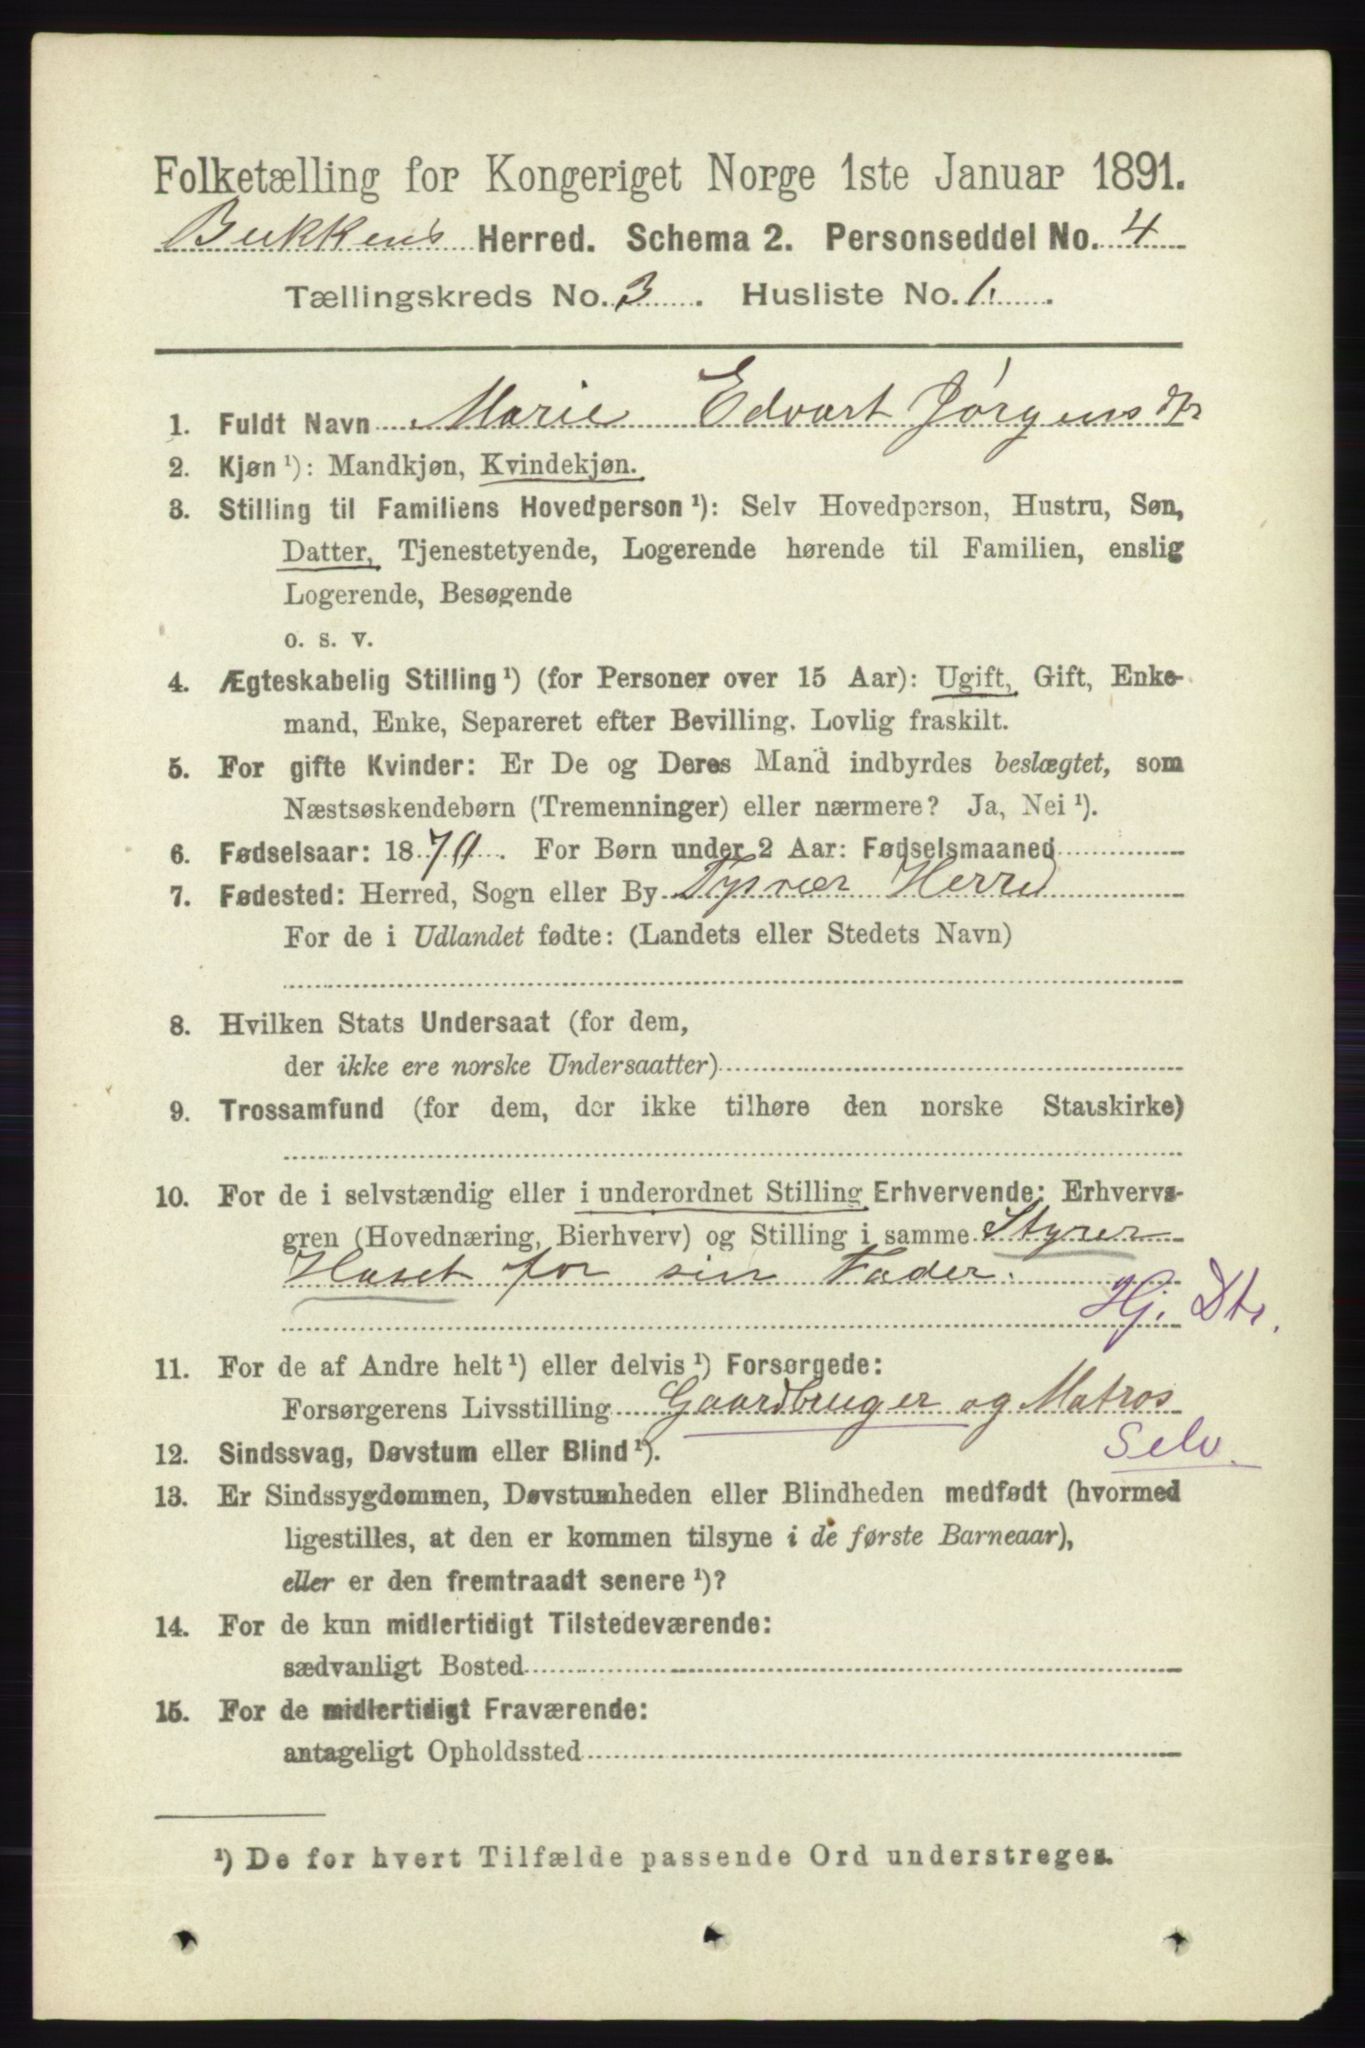 Folketælling for Kongeriget Norge 1ste Januar 1891.
Bukkens Herred. Schema 2. Personseddel No. 4
Tællingskreds No. 3. Husliste No. 1.
1. Fuldt Navn Marie Edvart Jørgensdtr
2. Kjøn ¹): Mandkjøn, Kvindekjøn.
3. Stilling til Familiens Hovedperson ¹): Selv Hovedperson, Hustru, Søn,
Datter, Tjenestetyende, Logerende hørende til Familien, enslig
Logerende, Besøgende
o. s. v.
4. Ægteskabelig Stilling ¹) (for Personer over 15 Aar): Ugift, Gift, Enke-
mand, Enke, Separeret efter Bevilling. Lovlig fraskilt.
5. For gifte Kvinder: Er De og Deres Mand indbyrdes beslægtet, som
Næstsøskendebørn (Tremenninger) eller nærmere? Ja, Nei ¹).
6. Fødselsaar: 1870. For Børn under 2 Aar: Fødselsmaaned
7. Fødested: Herred, Sogn eller By Tysvær Herred
For de i Udlandet fødte: (Landets eller Stedets Navn)
8. Hvilken Stats Undersaat (for dem,
der ikke ere norske Undersaatter)
9. Trossamfund (for dem, der ikke tilhøre den norske Statskirke)
10. For de i selvstændig eller i underordnet Stilling Erhvervende: Erhvervs-
gren (Hovednæring, Bierhverv) og Stilling i samme Styrer
Huset for sin Fader.
Hj. Dtr.
11. For de af Andre helt ¹) eller delvis ¹) Forsørgede:
Forsørgerens Livsstilling Gaardbruger og Matros
Selv
12. Sindssvag, Døvstum eller Blind ¹).
13. Er Sindssygdommen, Døvstumheden eller Blindheden medfødt (hvormed
ligestilles, at den er kommen tilsyne i de første Barneaar),
eller er den fremtraadt senere ¹)?
14. For de kun midlertidigt Tilstedeværende:
sædvanligt Bosted
15. For de midlertidigt Fraværende:
antageligt Opholdssted
¹) De for hvert Tilfælde passende Ord understreges.